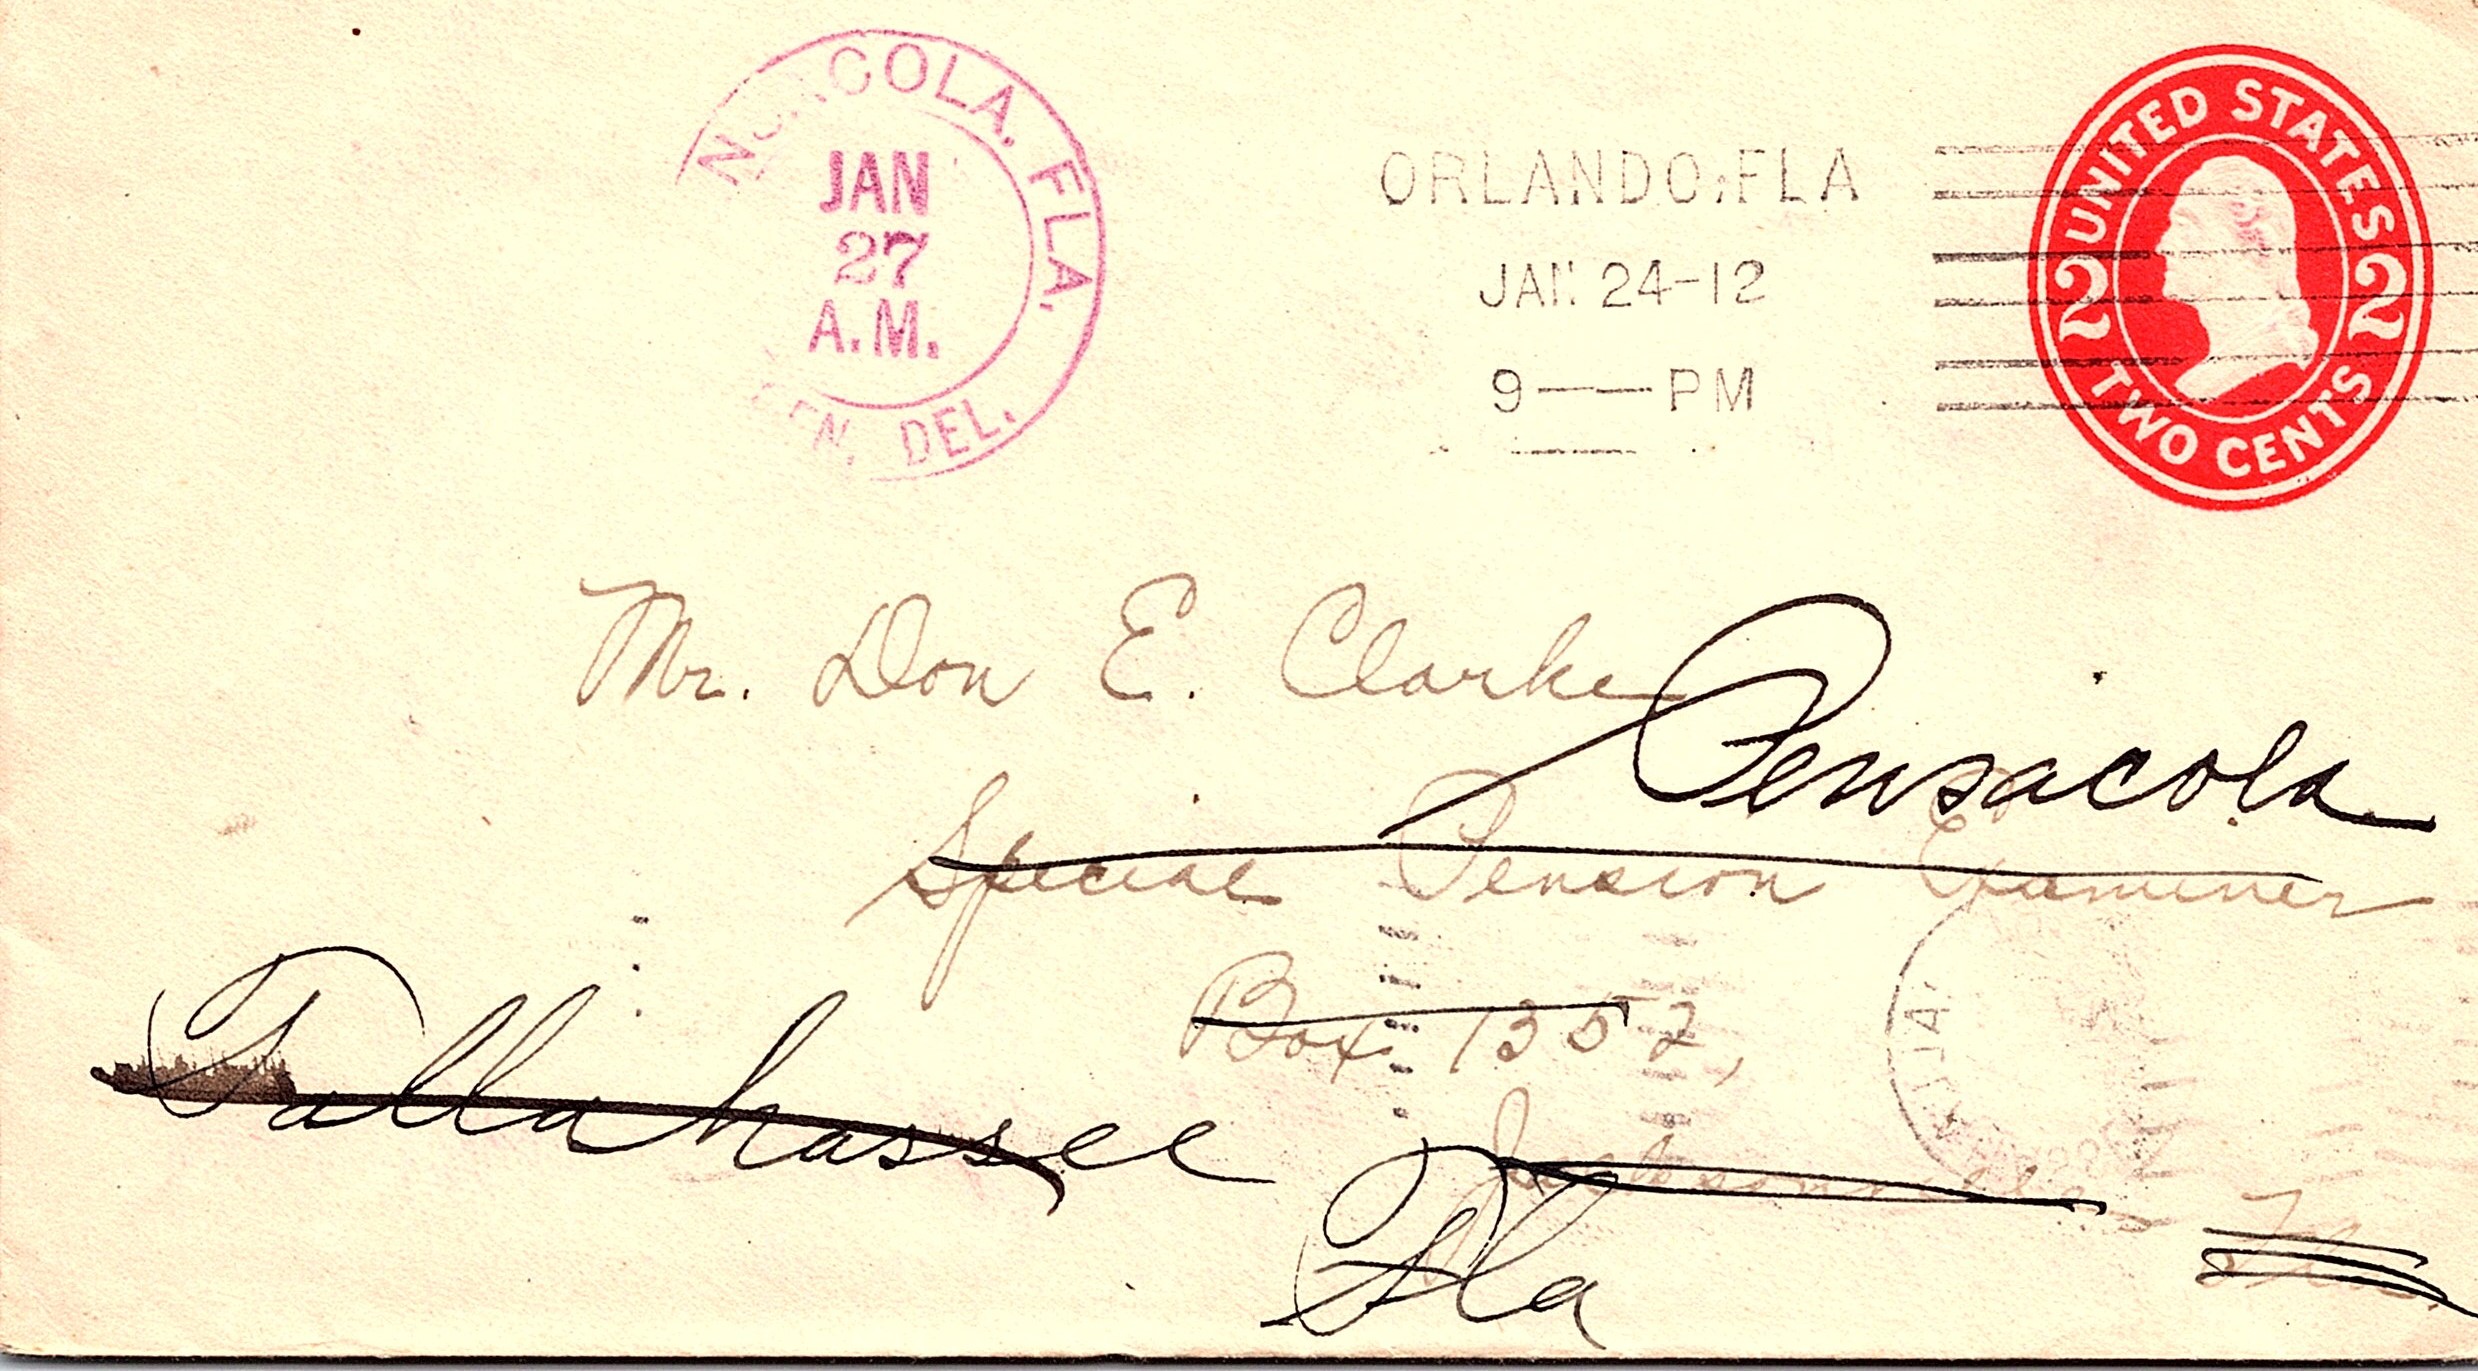 NSACOLA, FLA.
JAN
27
A.M.
GEN. DEL.
ORLANDO, FLA
JAN 24-12
9 — PM
UNITED STATES
2 2
TWO CENTS
Mr. Don E. Clarke
Pensacola
Special Pension Examiner
Box 1352,
Tallahassee
Jacksonville
Fla.
Fla
JAN